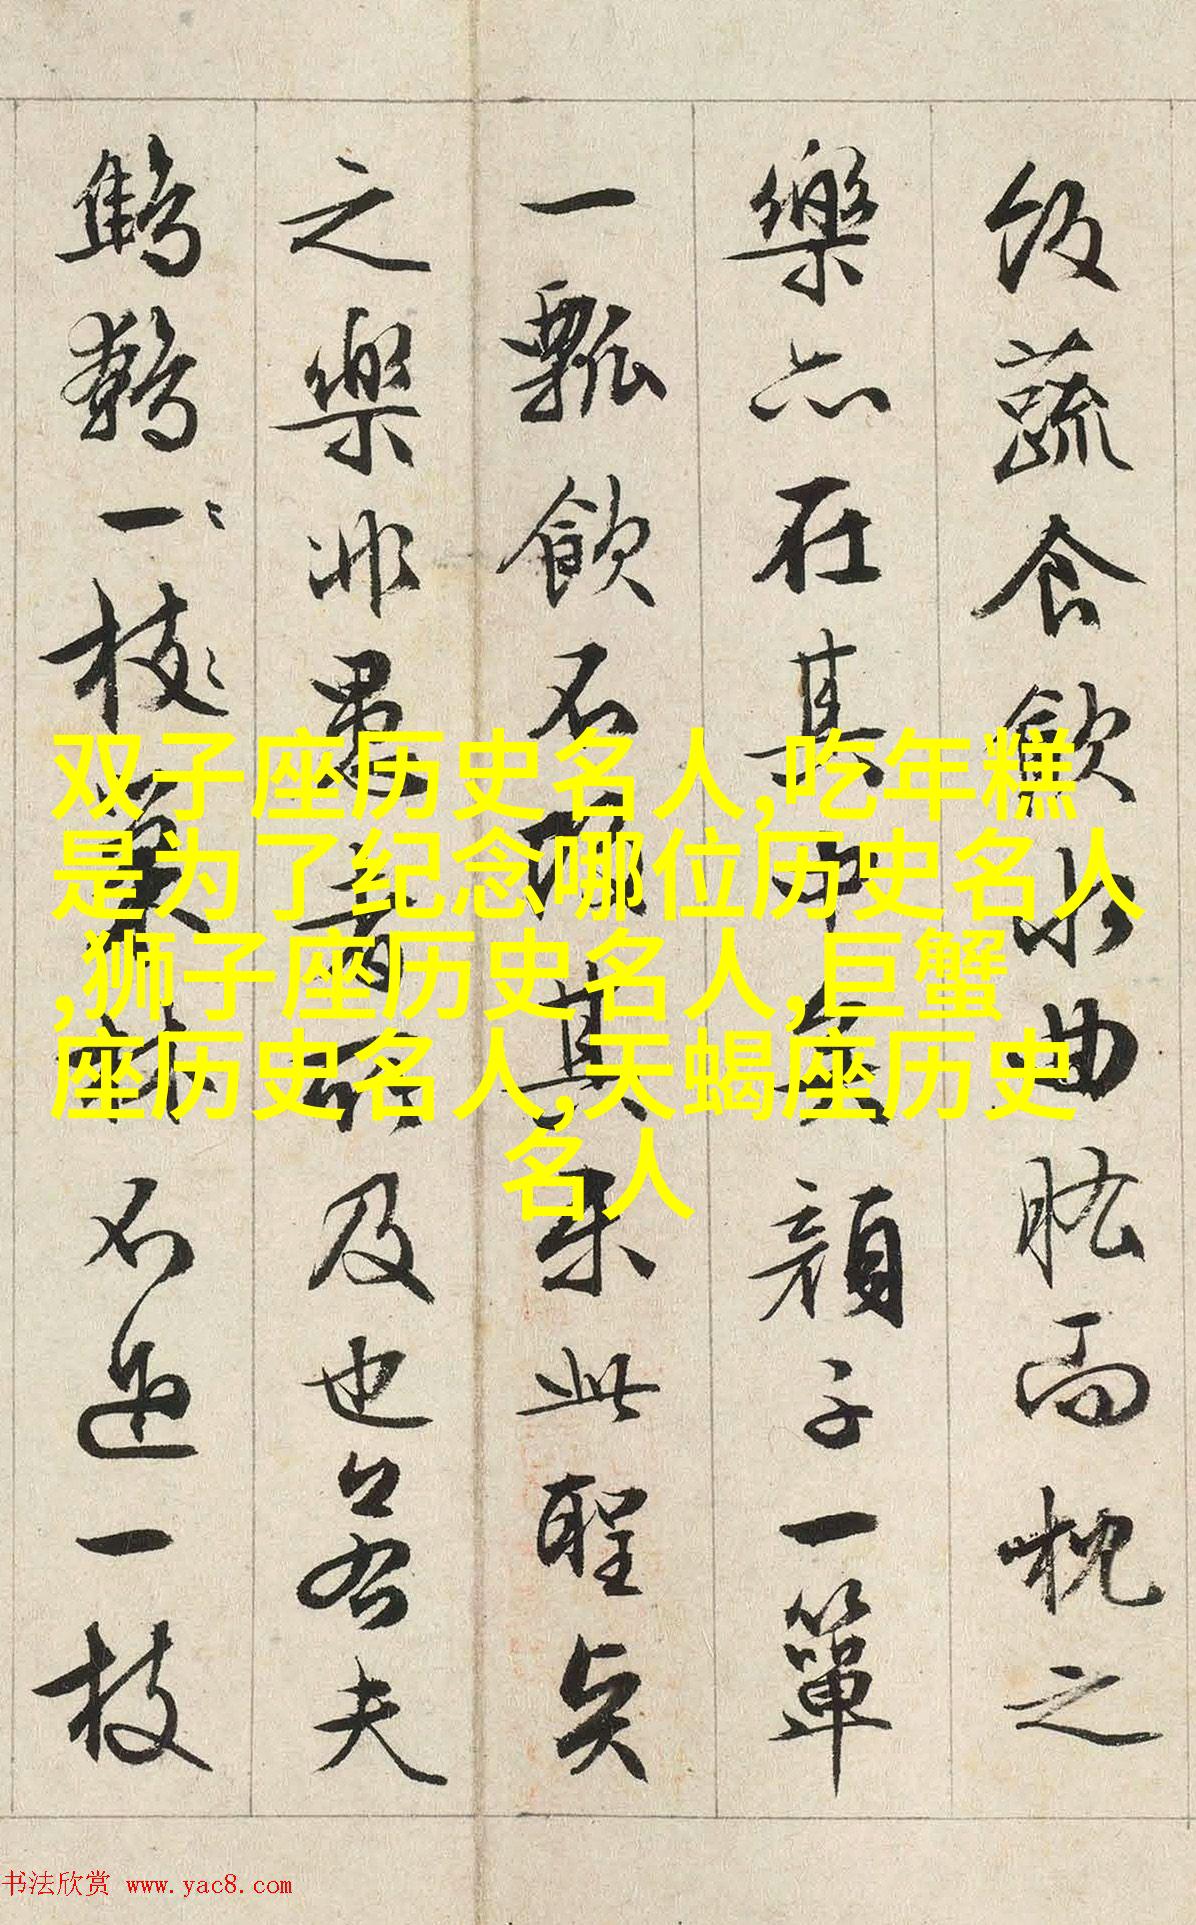 飯蔬食飲水曲肱而枕之
樂亦在其中矣顏子一簞
一瓢飲不改其樂此聖賢
之樂非愚者所及也若夫
鷦鷯一枝巢林不過一枝
双子座历史名人,吃年糕
是为了纪念哪位历史名人
,狮子座历史名人,巨蟹
座历史名人,天蝎座历史
名人
书法欣赏 www.yac8.com